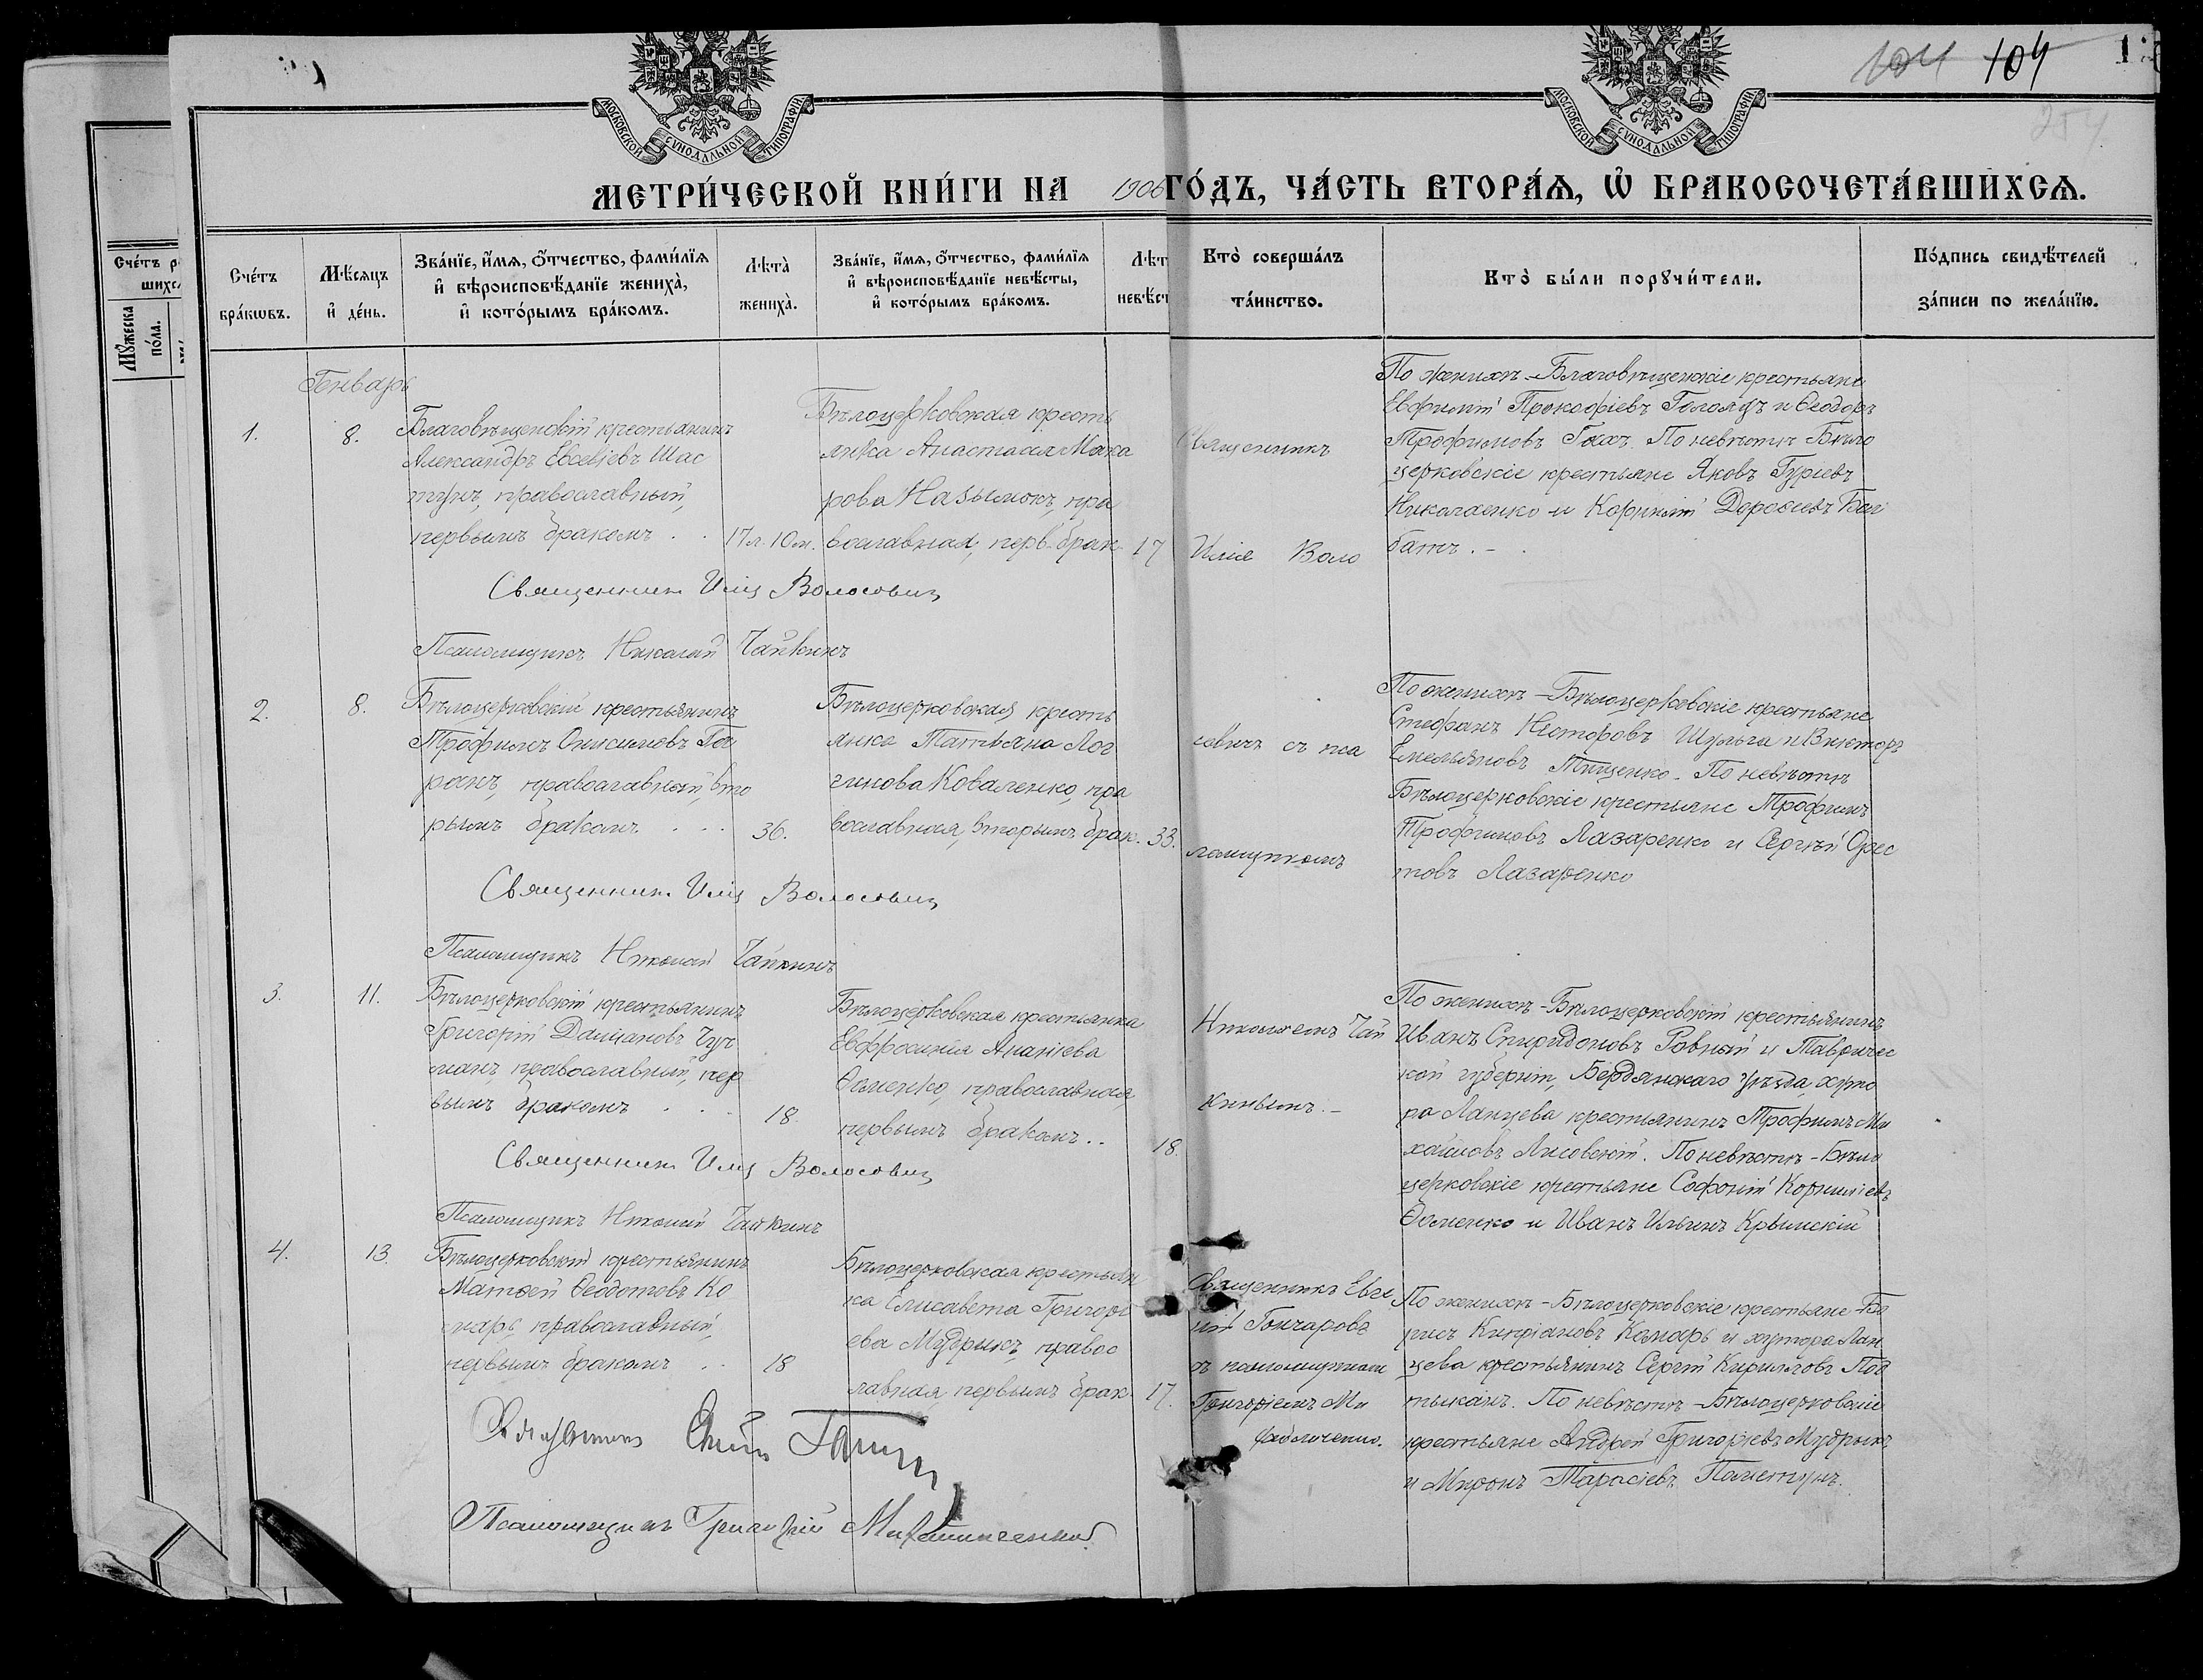 104 104
254
МОСКОВСКОЙ СѴНОДАЛЬНОЙ ТИПОГРАФІИ
МОСКОВСКОЙ СѴНОДАЛЬНОЙ ТИПОГРАФІИ
МЕТРИ́ЧЕСКОЙ КНИ́ГИ НА 1906 ГО́ДЪ, ЧА́СТЬ ВТОРА́Ѧ, Ѡ҆ БРАКОСОЧЕТА́ВШИХСѦ.
Сче́тъ
шихс
Мꙋ́жеска
по́ла.
Сче́тъ
бра́кѡвъ.
Мѣ́сѧцъ
и҆ де́нь.
Зва́нїе, и҆́мѧ, ѻ҆́тчество, фами́лїѧ
и҆ вѣроисповѣ́данїе жениха̀,
и҆ кото́рымъ бра́комъ.
Лѣта̀
жениха̀.
Зва́нїе, и҆́мѧ, ѻ҆́тчество, фами́лїѧ
и҆ вѣроисповѣ́данїе невѣ́сты,
и҆ кото́рымъ бра́комъ.
Лѣт
невѣ́ст
Кто̀ соверша́лъ
та́инство.
Кто̀ бы́ли порꙋчи́тели.
По́дпись свидѣ́телей
за́писи по жела́нїю.
Генварь
1.
8.
Благовѣщенскій крестьянинъ
Александръ Евсевіевъ Шас
тунъ, православный,
первымъ бракомъ . .
17 л. 10 м.
Бѣлоцерковская кресть
янка Анастасія Мака
рова Назымокъ, пра
вославная, перв. брак.
17
Священникъ
Илія Воло
По женихѣ - Благовѣщенскіе крестьяне
Евфимій Прокофіевъ и Ѳеодоръ
Трофимовъ По невѣстѣ Бѣло
церковскіе крестьяне Яковъ Гуріевъ
Николаенко и Корнилій Дороѳеевъ Бай
батъ. -
Священникъ Илія Волосовичъ
Псаломщикъ Николай Чайкинъ
2.
8.
Бѣлоцерковскій крестьянинъ
Трофимъ Онисимовъ Га
ранъ, православный, вто
рымъ бракомъ . . .
36.
Бѣлоцерковская кресть
янка Татьяна Лог
гинова Коваленко, пра
вославная, вторымъ брак.
33.
совичъ съ пса
ломщикомъ
По женихѣ - Бѣлоцерковскіе крестьяне
Стефанъ Несторовъ Шульга и Викторъ
Емельяновъ Тищенко. По невѣстѣ
Бѣлоцерковскіе крестьяне Трофимъ
Трофимовъ Лазаренко и Сергѣй Орес
товъ Лазаренко
Священникъ Илія Волосовичъ
Псаломщикъ Николай Чайкинъ
3.
11.
Бѣлоцерковскій крестьянинъ
Григорій Даміановъ Чуч
манъ, православный, пер
вымъ бракомъ . . .
18.
Бѣлоцерковская крестьянка
Евфросинія Ананіева
Ѳоменко, православная,
первымъ бракомъ . .
18.
Николаемъ Чай
кинымъ. -
По женихѣ - Бѣлоцерковскій крестьянинъ
Иванъ Спиридоновъ Ровный и Тавричес
кой губерніи, Бердянскаго уѣзда, хуто
ра Ланцева крестьянинъ Трофимъ Ми
хайловъ Лисовскій. По невѣстѣ - Бѣло
церковскіе крестьяне Софоній Корниліевъ
Ѳоменко и Иванъ Ильинъ Крымскій
Священникъ Илія Волосовичъ
Псаломщикъ Николай Чайкинъ
4.
13.
Бѣлоцерковскій крестьянинъ
Матѳей Ѳеодотовъ Ко
маръ, православный,
первымъ бракомъ . .
18
Бѣлоцерковская крестьян
ка Елисавета Григорі
ева Мудрикъ, правос
лавная, первымъ брак.
17.
Священникъ Евге
ній Гончаровъ
съ псаломщикомъ
Григоріемъ Ми
По женихѣ - Бѣлоцерковскіе крестьяне Бо
рисъ Кипріановъ Комаръ и хутора Лан
цева крестьянинъ Сергій Кирилловъ Пов
тыканъ. По невѣстѣ - Бѣлоцерковскіе
крестьяне Андрей Григорьевъ Мудрикъ
и Миронъ Тарасіевъ
Священникъ
Псаломщикъ Григорій